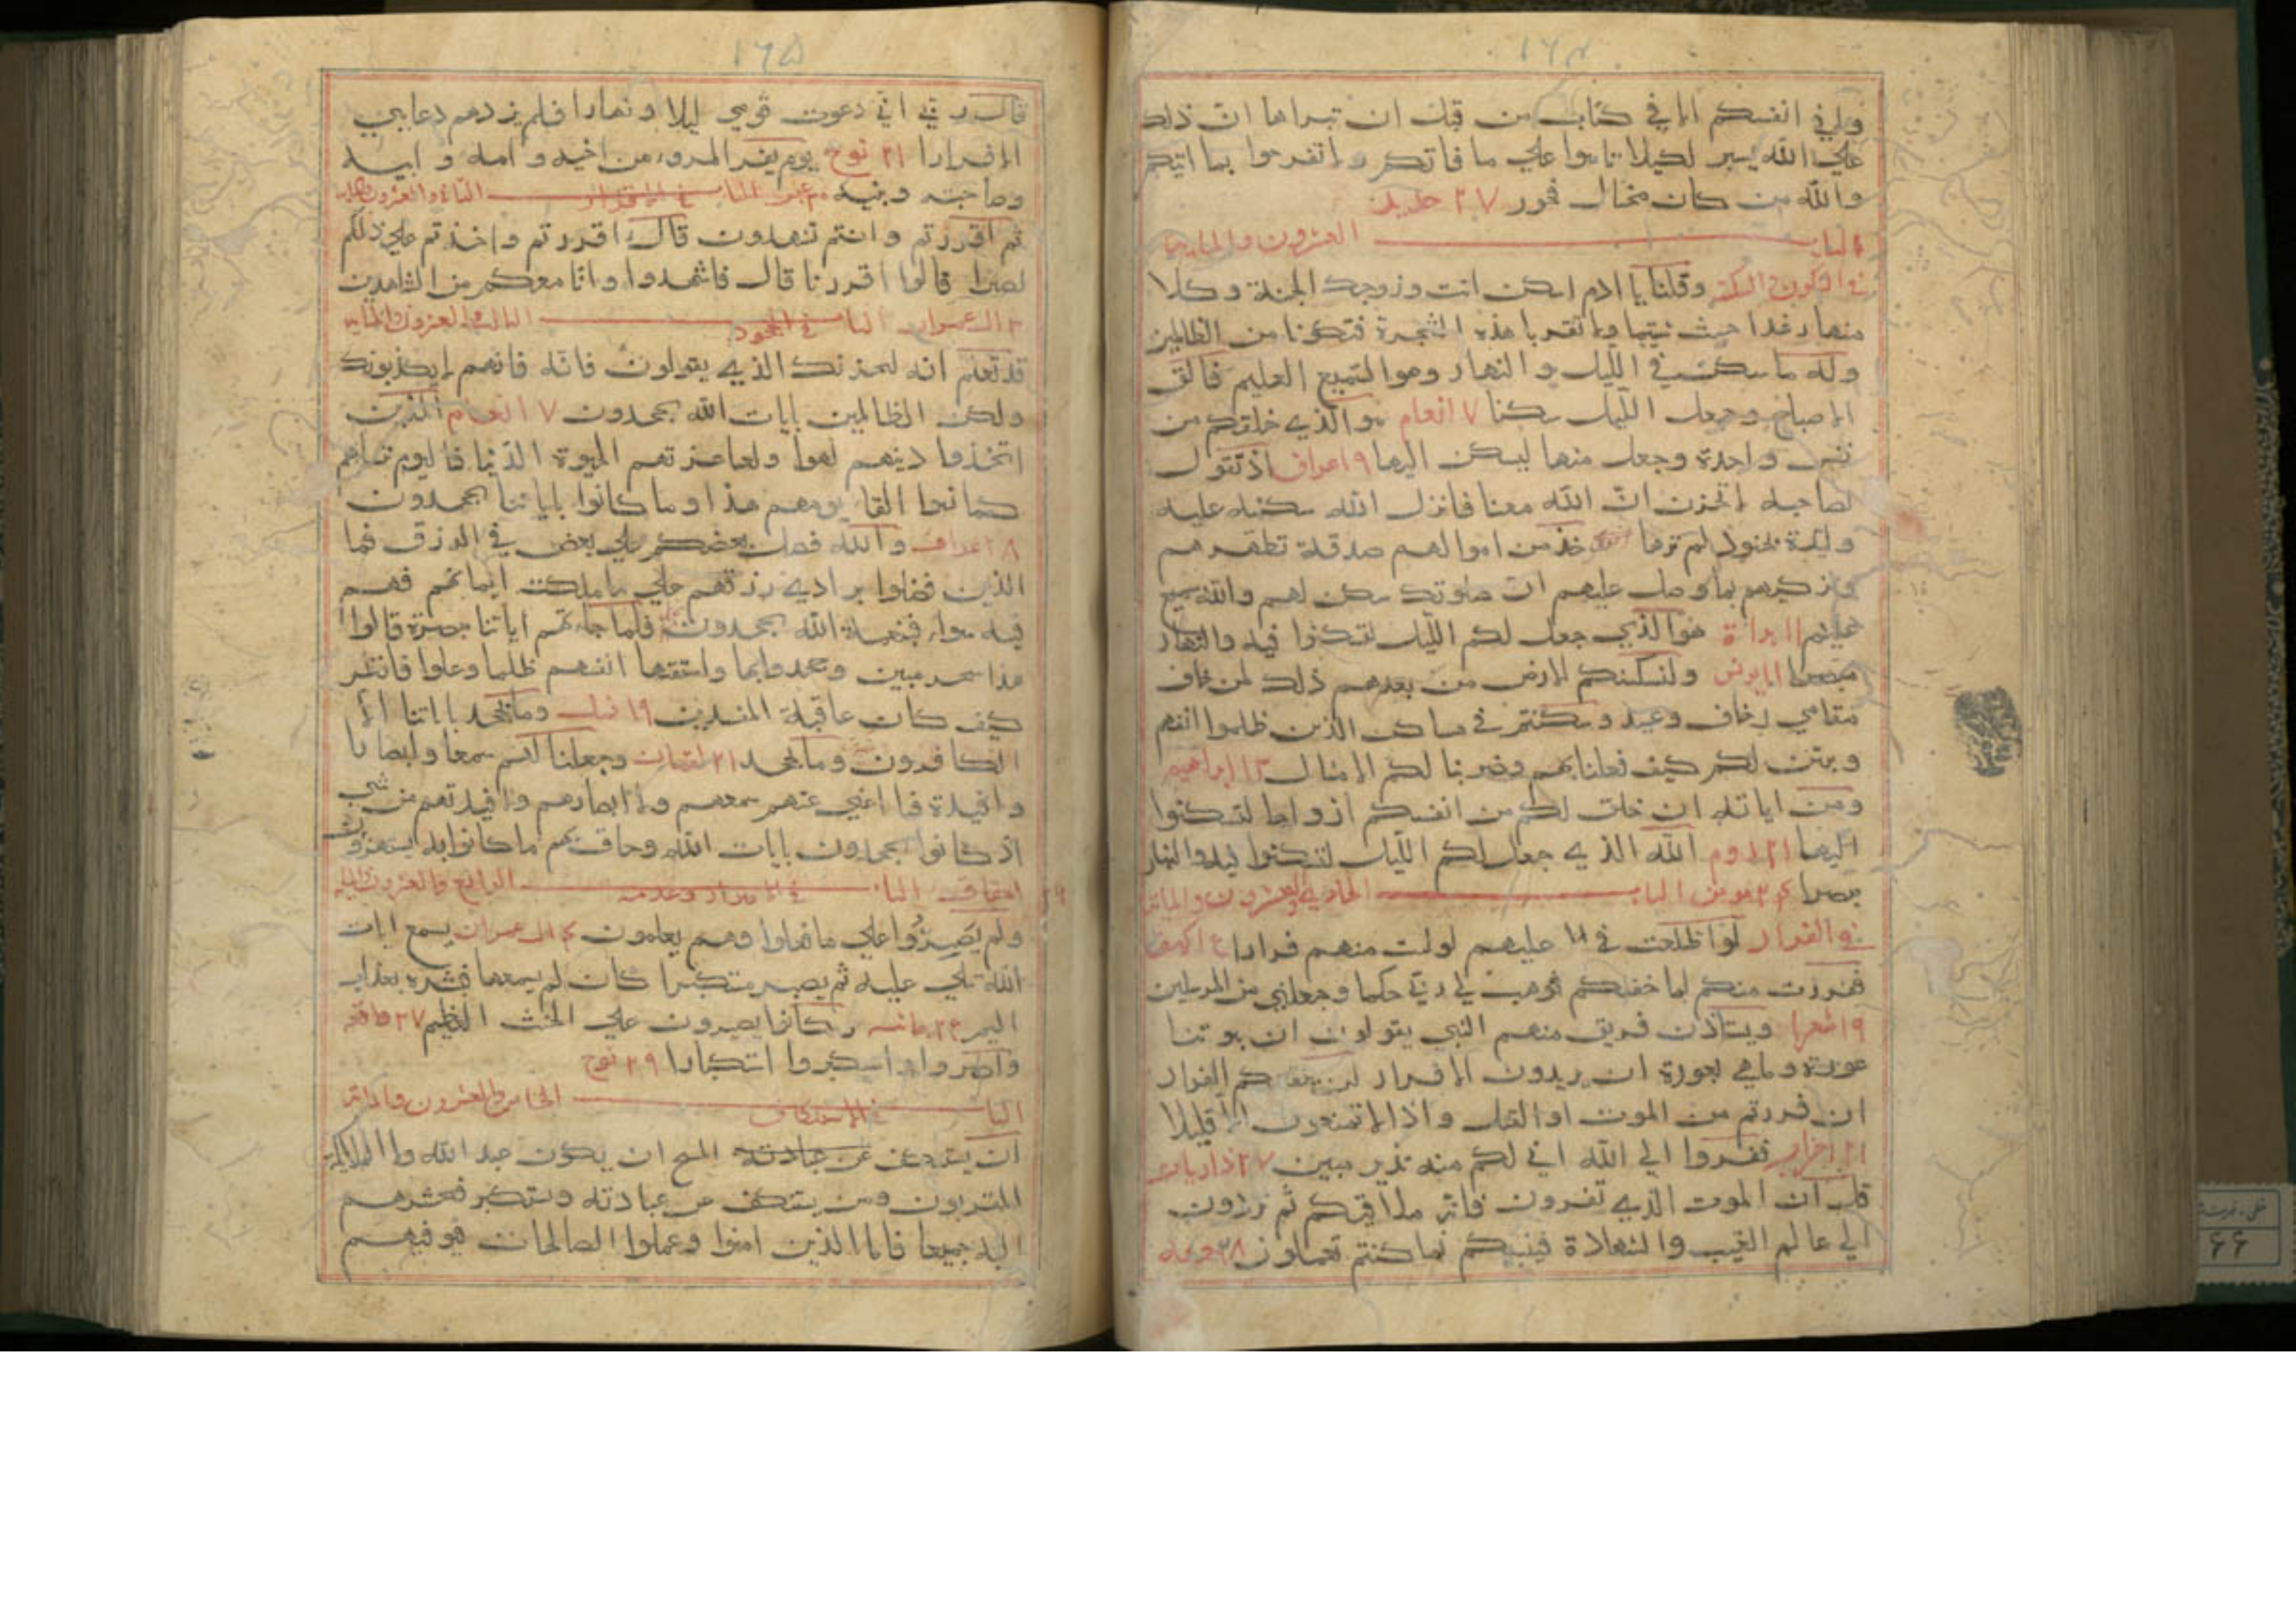 ١٦٤
ولا في انفسكم الا في كتاب من قبل ان نبراها ان ذلك
علي الله يسير لكيلا تاسوا علي ما فاتكم ولا تفرحوا بما اتيكم
والله من كان مختال فخور ٢٧ حديد
الباب العشرون والمايه
في السكون والسكنه وقلنا يا ادم اسكن انت وزوجك الجنة وكلا
منها رغدا حيث شيتما ولا تقربا هذه الشجرة فتكونا من الظالمين
وله ما سكن في الليل والنهار وهو السميع العليم فالق
الاصباح وجعل الليل سكنا ٧ انعام هو الذي خلقكم من
نفس واحدة وجعل منها ليسكن اليها ٩ اعراف اذ تقول
لصاحبه لا تحزن ان الله معنا فانزل الله سكينه عليه
وايده بجنود لم تروها خذ من اموالهم صدقة تطهرهم
وتزكيهم بها وصل عليهم ان صلوتك سكن لهم والله سميع
عليم ١١ براة هو الذي جعل لكم الليل لتسكنوا فيه والنهار
مبصرا ١١ يونس ولنسكننكم الارض من بعدهم ذلك لمن خاف
مقامي وخاف وعيد وسكنتم في مساكن الذين ظلموا انفسهم
وتبين لكم كيف فعلنا بهم وضربنا لكم الامثال ١٣ ابراهيم
ومن اياته ان خلق لكم من انفسكم ازواجا لتسكنوا
اليها ٢١ روم الله الذي جعل لكم الليل لتسكنوا فيه والنهار
مبصرا ٢٤ مومن الباب الحادي والعشرون والمائة
في الفرار لو اطلعت عليهم لوليت منهم فرارا
ففررت منكم لما خفتكم فوهب لي ربي حكما وجعلني من المرسلين
١٩ شعرا ويستاذن فريق منهم النبي يقولون ان بيوتنا
عورة وما هي بعورة ان يريدون الا فرار لن ينفعكم الفرار
ان فررتم من الموت او القتل واذا لا تمتعون الا قليلا
٢١ احزاب ففروا الي الله اني لكم منه نذير مبين ٢٧ ذاريات
قل ان الموت الذي تفرون فانه ملاقيكم ثم تردون
الي عالم الغيب والشهادة فينبيكم بما كنتم تعملون ٢٨ جمعه
١٦٥
قال رب اني دعوت قومي ليلا ونهارا فلم يزدهم دعايي
الا فرارا ٢١ نوح يوم يفر المرو من اخيه وامه وابيه
وصاحبته وبنيه عبس الباب في الاقرار الثاني والعشرون والمايه
ثم اقررتم وانتم تشهدون قال اقررتم واخذتم علي ذلكم
اصري قالوا اقررنا قال فاشهدوا وانا معكم من الشاهدين
٣ ال عمران الباب في الجحود الثالث والعشرون والمايه
قد نعلم انه ليحزنك الذي يقولون فانه فانهم لا يكذبونك
ولكن الظالمين بايات الله يجحدون ٧ انعام الذين
اتخذوا دينهم لهوا ولعبا وغرتهم الحيوة الدنيا فاليوم ننساهم
كما نسوا لقاء يومهم هذا وما كانوا باياتنا يجحدون
٨ اعراف والله فضل بعضكم علي بعض في الرزق فما
الذين فضلوا برادي رزقهم علي ما ملكت ايمانهم فهم
فيه سواء افبنعمة الله يجحدون فلما جاءتهم اياتنا مبصرة قالوا
هذا سحر مبين وجحدوا بها واستيقنتها انفسهم ظلما وعلوا فانظر
كيف كان عاقبة المفسدين ١٩ نمل وما يجحد باياتنا الا
الكافرون وما يجحد ٢١ لقمان وجعلنا لهم سمعا وابصارا
وافيدة فما اغني عنهم سمعهم ولا ابصارهم ولا افيدتهم من شي
اذ كانوا يجحدون بايات الله وحاق بهم ما كانوا به يستهزون
٢٦ احقاف الباب في الاصرار وعدمه الرابع والعشرون والمايه
ولم يصروا علي ما فعلوا وهم يعلمون ٤ ال عمران يسمع ايات
الله تتلي عليه ثم يصر مستكبرا كان لم يسمعها فبشره بعذاب
اليم ٢٥ جاثيه وكانوا يصرون علي الحنث العظيم ٢٧ واقعه
واصروا واستكبروا استكبارا ٢٩ نوح
الباب في الاستنكاف الخامس والعشرون والمائة
لن يستنكف عن عبادته المسيح ان يكون عبد الله ولا الملايكة
المقربون ومن يستنكف عن عبادته ويستكبر فسيحشرهم
اليه جميعا فاما الذين امنوا وعملوا الصالحات فيوفيهم